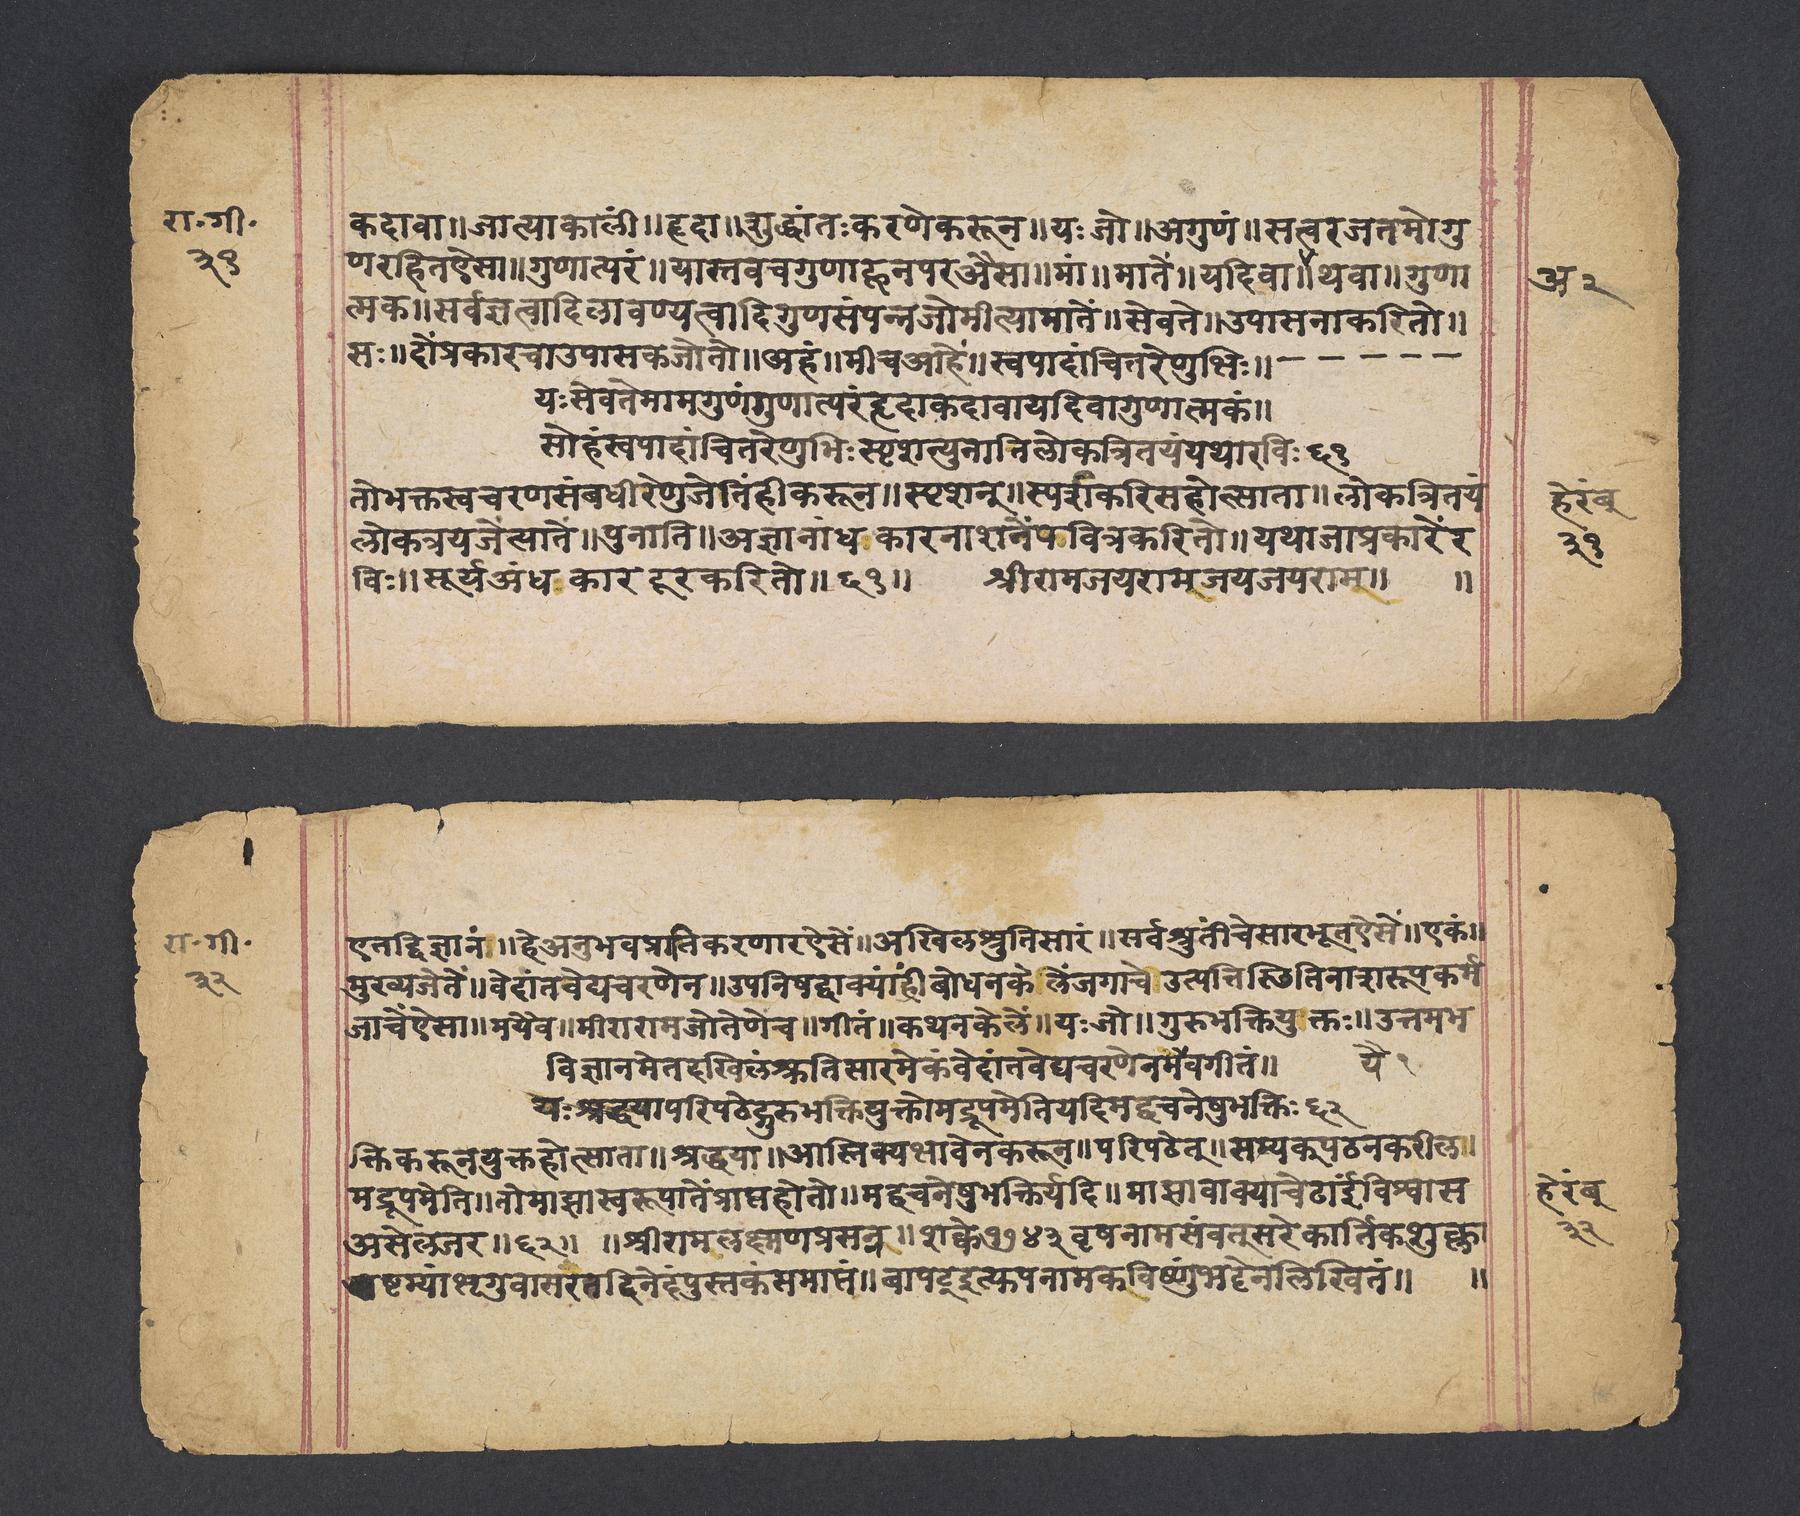 रा॰गी॰
३१
कदावा॥जात्याकालीं॥हृदा॥शुद्धांतःकरणेकरून॥यःजो॥अगुणं॥सत्वरजतमोगु
णरहितऐसा॥गुणात्परं॥यास्तवचगुणाहूनपरऔसा॥मां॥मातें॥यदिवा॥थवा॥गुणा
त्मक॥सर्वज्ञत्वादिलावण्यत्वादिगुणसंपन्नजोमीत्यामातें॥सेवते॥उपासनाकरितो॥
सः॥दोंप्रकारचाउपासकजोतो॥अहं॥मीचआहे॥स्वपादांचितरेणुभिः॥— — — — —
यःसेवतेमामगुणंगुणात्परंहृदाकदावायदिवागुणात्मकं॥
सोहंस्वपादांचितरेणुभिःस्पृशत्पुनातिलोकत्रितयंयथारविः६१
तोभक्तस्वचरणसंबधीरेणुजेतिंहीकरून॥स्पृशन्॥स्पर्शकरिसहोत्साता॥लोकत्रितयं
लोकत्रयजेत्यातें॥पुनाति॥अज्ञानांधकारनाशनेंपवित्रकरितो॥यथाजाप्रकारेंर
विः॥सूर्यअंधकारदूरकरितो॥६१॥ श्रीरामजयरामजयजयराम॥ ॥
अ२
हेरंबु
३१
रा॰गी॰
३२
एतद्विज्ञानं॥हेअनुभवप्राप्तिकरणारऐसें॥अखिलश्रुतिसारं॥सर्वश्रुतीचेसारभूतऐसें॥एकं॥
मुख्यजेतें॥वेदांतवेद्यचरणेन॥उपनिषद्वाक्यांहीबोधनकेलेंजगाचे उत्पत्तिस्थितिनाशरूपकर्म
जाचेंऐसा॥मयैव॥मीरारामजोतेणेच॥गीतं॥कथनकेलें॥यःजो॥गुरुभक्तियुक्तः॥उत्तमभ
विज्ञानमेतदखिलंश्रुतिसारमेकंवेदांतवेद्यचरणेनमैवगीतं॥ यै१
यःश्रद्धयापरिपठेद्गुरुभक्तियुक्तोमद्रूपमेतियदिमद्वचनेषुभक्तिः६२
क्तिकरूनयुक्तहोत्साता॥श्रद्धया॥आस्तिक्यभावेनकरून॥परिपठेत्॥सम्यक्पठनकरील॥
मद्रूपमेति॥तोमाझास्वरूपातेंप्राप्तहोतो॥मद्वचनेषुभक्तिर्यदि॥माझावाक्याचेठाईंविश्वास
असेलजर॥६२॥ ॥श्रीरामलक्ष्मणप्रसन्न॥शके१७४३वृषनामसंवत्सरेकार्तिकशुक्ल
अष्टम्यांभृगुवासरेतद्दिनेदंपुस्तकंसमाप्तं॥बापटेइत्युपनामकविष्णुभट्टेनलिखितं॥ ॥
हेरंबु
३२